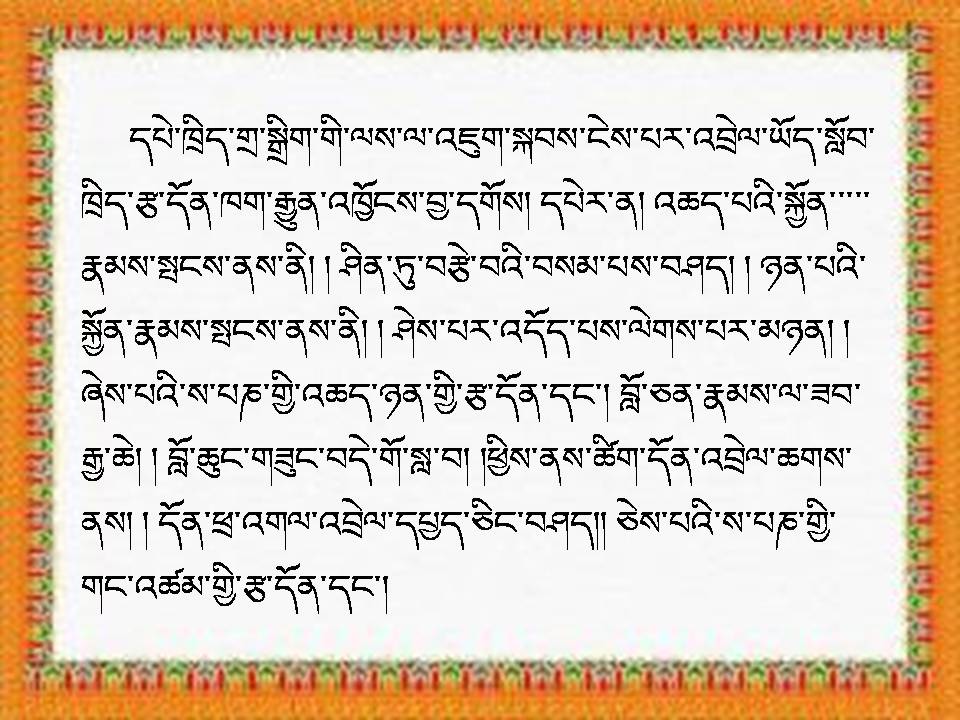 དཔེ་ཁྲིད་གྲ་སྒྲིག་གི་ལས་ལ་འཇུག་སྐབས་ངེས་པར་འབྲེལ་ཡོད་སློབ་
ཁྲིད་རྩ་དོན་ཁག་རྒྱུན་འཁྱོངས་བྱ་དགོས། དཔེར་ན། འཆད་པའི་སྐྱོན་་་་་
རྣམས་སྤངས་ནས་ནི། །ཤིན་ཏུ་བརྩེ་བའི་བསམ་པས་བཤད། །ཉན་པའི་
སྐྱོན་རྣམས་སྤངས་ནས་ནི། །ཤེས་པར་འདོད་པས་ལེགས་པར་མཉན། །
ཞེས་པའི་ས་པཎ་གྱི་འཆད་ཉན་གྱི་རྩ་དོན་དང་། བློ་ཅན་རྣམས་ལ་ཟབ་
རྒྱ་ཆེ། །བློ་ཆུང་གཟུང་བདེ་གོ་སླ་བ། །ཕྱིས་ནས་ཚིག་དོན་འབྲེལ་ཆགས་
ནས། །དོན་ཕྲ་འགལ་འབྲེལ་དཔྱད་ཅིང་བཤད།། ཅེས་པའི་ས་པཎ་གྱི་
གང་འཚམ་གྱི་རྩ་དོན་དང་།